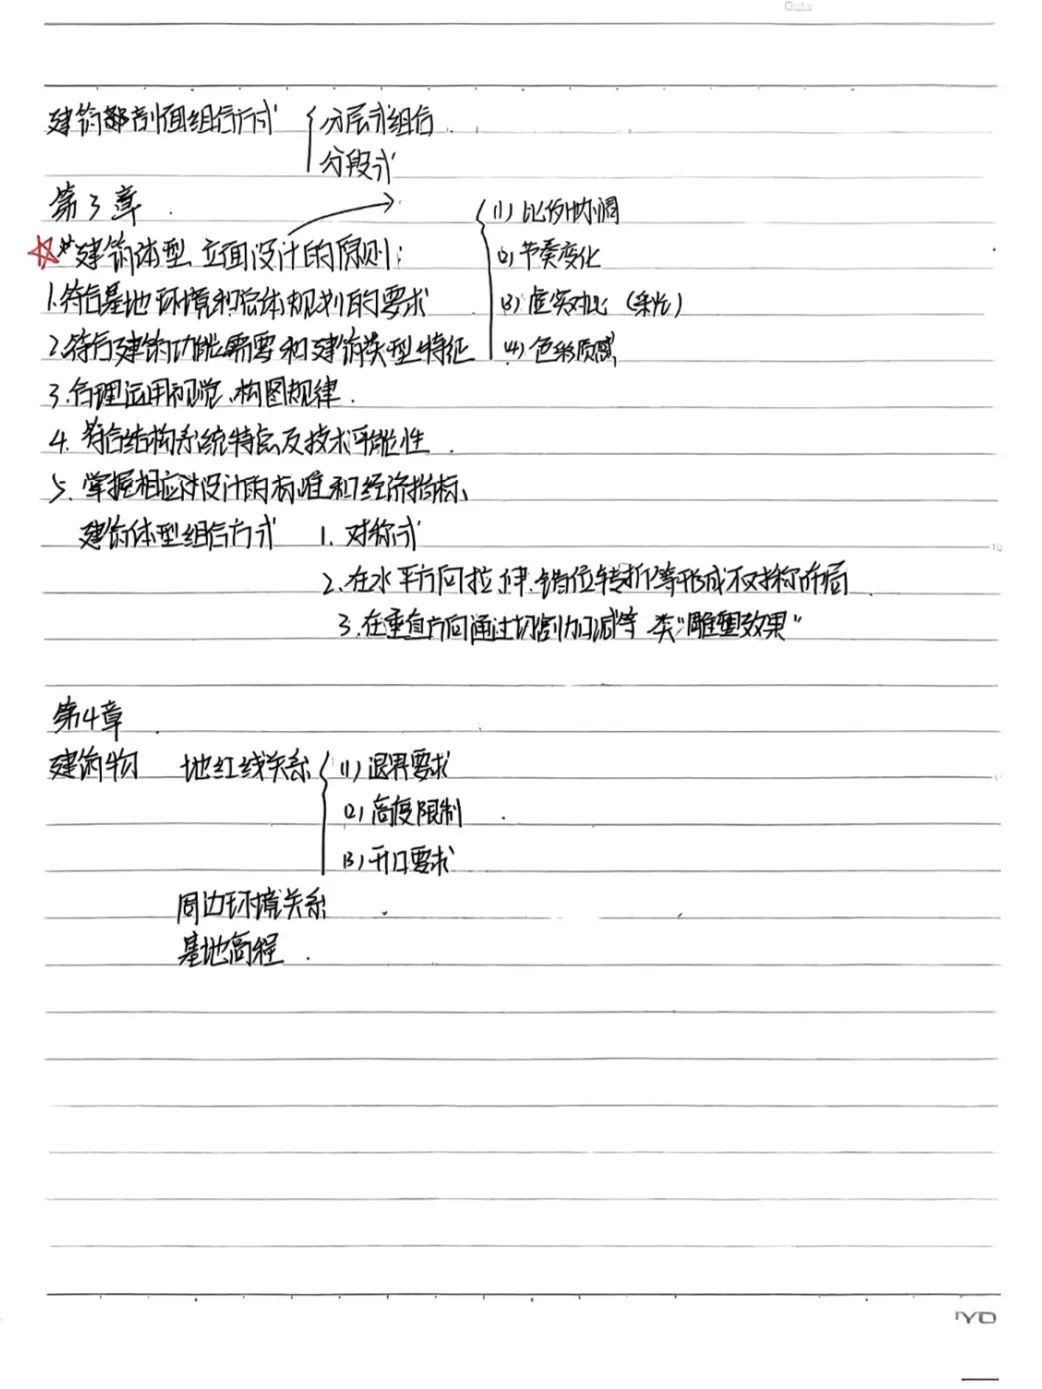 建筑剖面组合方式 { 分层式组合
分段式
第3章
☆建筑体型、立面设计的原则：
(1) 比例协调
(2) 节奏变化
(3) 虚实对比（采光）
(4) 色彩质感
1.符合基地环境和总体规划的要求
2.符合建筑功能需要和建筑类型特征
3.合理运用视觉、构图规律.
4.符合结构系统特点及技术可能性.
5.掌握相应设计的标准和经济指标、
建筑体型组合方式 1.对称式
2.在水平方向拉伸、错位转折等形成不对称布局
3.在垂直方向通过切割加减等 类“雕塑效果”
第4章
建筑物 地红线关系 { (1) 退界要求
(2) 高度限制
(3) 开口要求
周边环境关系
基地高程.